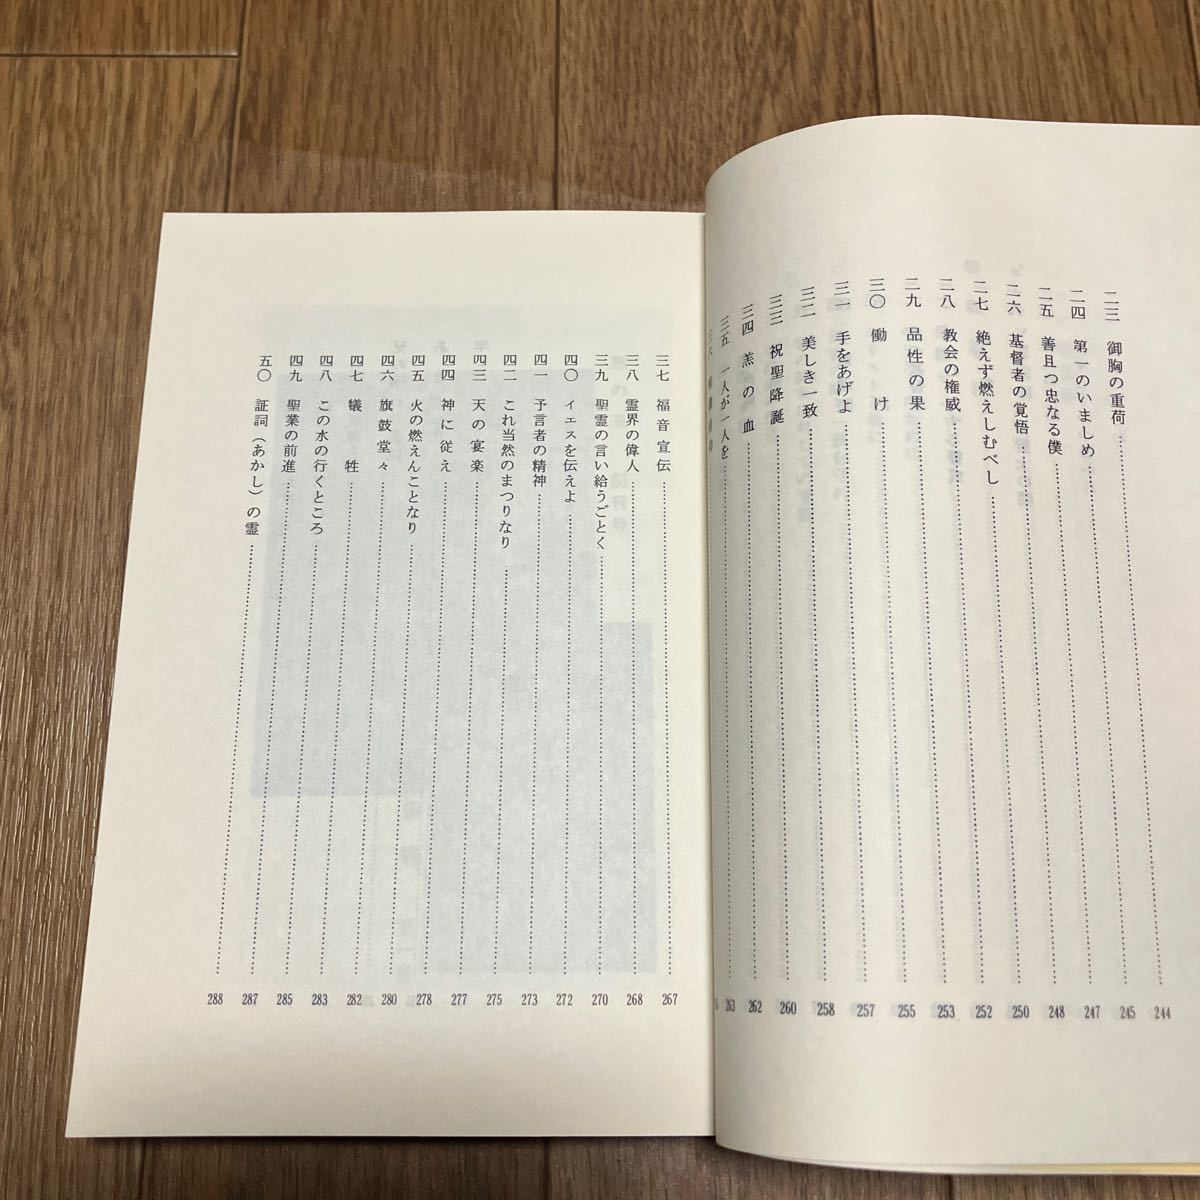 二三 御胸の重荷 244
二四 第一のいましめ 245
二五 善且つ忠なる僕 247
二六 基督者の覚悟 248
二七 絶えず燃えしむべし 250
二八 教会の権威 252
二九 品性の果 253
三〇 働け 255
三一 手をあげよ 257
三二 美しき一致 258
三三 祝聖降誕 260
三四 羔の血 262
三五 一人が一人を 263
三七 福音宣伝 267
三八 霊界の偉人 268
三九 聖霊の言い給うごとく 270
四〇 イエスを伝えよ 272
四一 予言者の精神 273
四二 これ当然のまつりなり 275
四三 天の宴楽 277
四四 神に従え 278
四五 火の燃えんことなり 280
四六 旗鼓堂々 282
四七 犠牲 283
四八 この水の行くところ 285
四九 聖業の前進 287
五〇 証詞（あかし）の霊 288